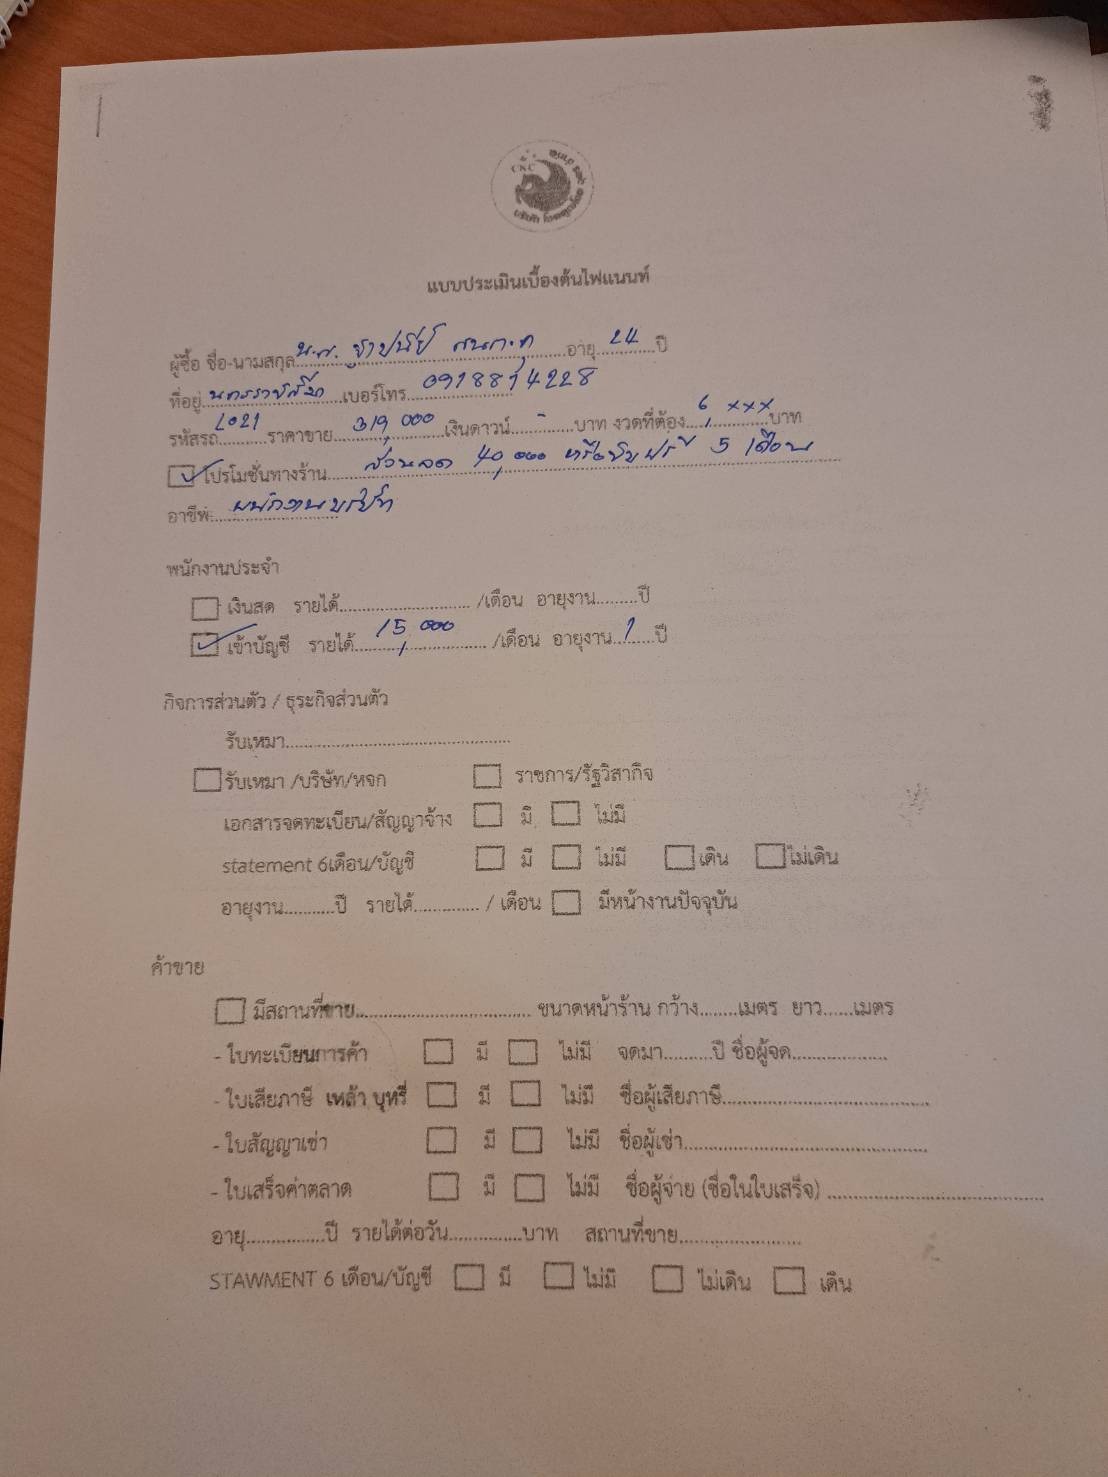 CKC
แบบประเมินเบื้องต้นไฟแนนท์
ผู้ซื้อ ชื่อ-นามสกุล น.ส. อายุ 24 ปี
ที่อยู่ นครราชสีมา เบอร์โทร 0918814228
รหัสรถ L021 ราคาขาย 319,000 เงินดาวน์ - บาท งวดที่ต้อง 6,xxx บาท
โปรโมชั่นทางร้าน ส่วนลด 40,000 หรือขับฟรี 5 เดือน
อาชีพ พนักงานบริษัท
พนักงานประจำ
เงินสด รายได้ /เดือน อายุงาน ปี
เข้าบัญชี รายได้ 15,000 /เดือน อายุงาน 1 ปี
กิจการส่วนตัว / ธุระกิจส่วนตัว
รับเหมา
รับเหมา /บริษัท/หจก ราชการ/รัฐวิสากิจ
เอกสารจดทะเบียน/สัญญาจ้าง มี ไม่มี
statement 6เดือน/บัญชี มี ไม่มี เดิน ไม่เดิน
อายุงาน ปี รายได้ / เดือน มีหน้างานปัจจุบัน
ค้าขาย
มีสถานที่ขาย ขนาดหน้าร้าน กว้าง เมตร ยาว เมตร
- ใบทะเบียนการค้า มี ไม่มี จดมา ปี ชื่อผู้จด
- ใบเสียภาษี เหล้า บุหรี่ มี ไม่มี ชื่อผู้เสียภาษี
- ใบสัญญาเช่า มี ไม่มี ชื่อผู้เช่า
- ใบเสร็จค่าตลาด มี ไม่มี ชื่อผู้จ่าย (ชื่อในใบเสร็จ)
อายุ ปี รายได้ต่อวัน บาท สถานที่ขาย
STAWMENT 6 เดือน/บัญชี มี ไม่มี ไม่เดิน เดิน